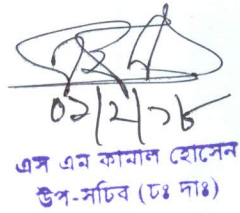 ০১/২/১৮
এস এম কামাল হোসেন
উপ-সচিব (চঃ দাঃ)